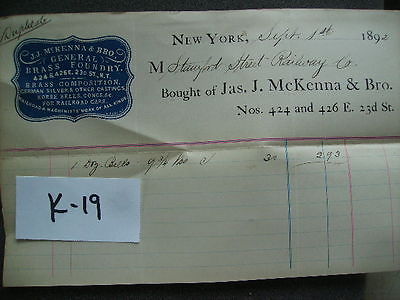 Duplicate
J.J. McKENNA & BRO.
GENERAL
BRASS FOUNDRY,
424 & 426 E. 23D ST. N.Y.
BRASS COMPOSITION,
GERMAN SILVER & OTHER CASTINGS,
HORSE BELLS, GONGS &C.
FOR RAILROAD CARS.
RAILROAD & MACHINISTS WORK OF ALL KINDS
NEW YORK, Sept. 1st 1892
M Stamford Street Railway Co.
Bought of JAS. J. MCKENNA & BRO.
Nos. 424 and 426 E. 23d St.
1 Doz. 9 3/4 lbs a/ 30 293
K-19